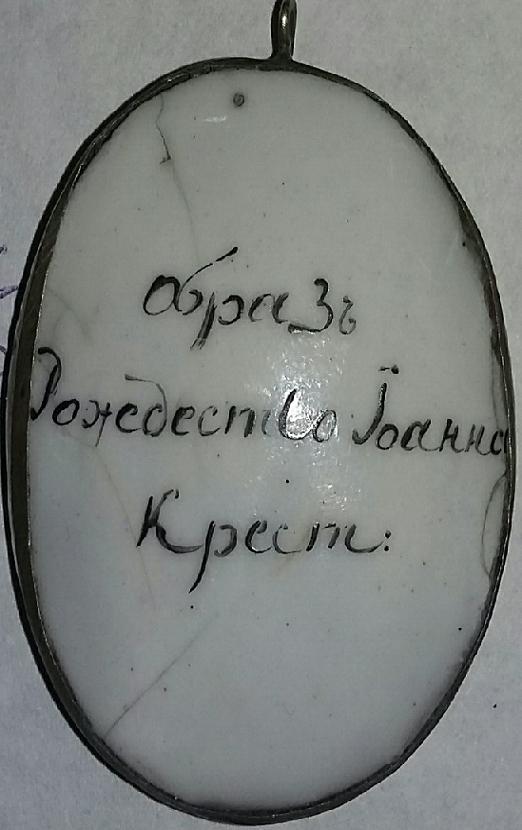 Образъ
Рождество Їоанна
Крест: